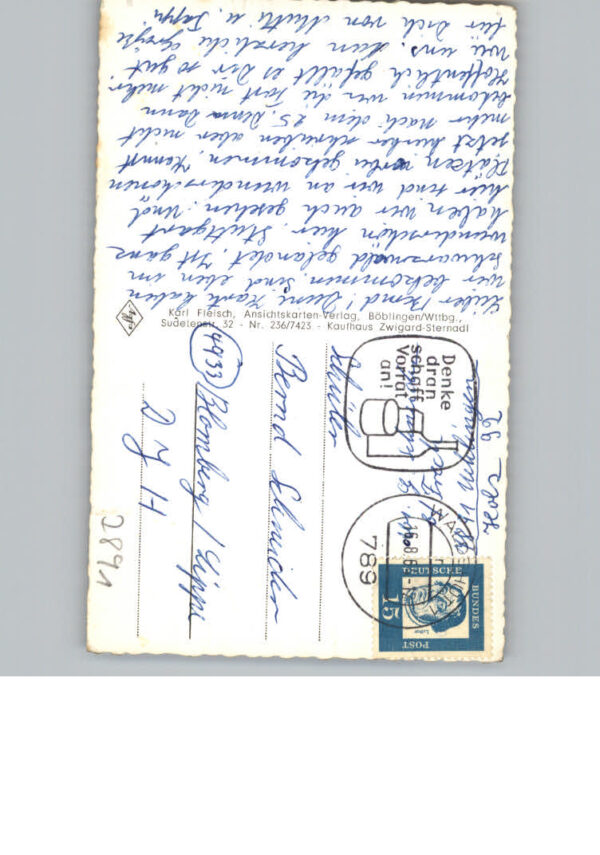 Lieber Bernd! Deine Karte haben
wir bekommen. Sind eben im
Schwarzwald gelandet. Ist ganz
wunderschön hier. Stuttgart
haben wir auch gesehen. Und
hier sind wir an wunderschönen
Plätzen vorbei gekommen. Kannst
jetzt hierher schreiben aber nicht
mehr nach dem 25. Denn dann
bekommen wir die Post nicht mehr.
Hoffentlich gefällt es Dir so gut
wie uns. Nun herzliche Grüße
für Dich von Mutti u. Pappi
Karl Fleisch, Ansichtskarten-Verlag, Böblingen/Wttbg.,
Sudetenstr. 32 - Nr. 236/7423 - Kaufhaus Zwigard-Sternadl
Agfa
Denke
dran
schaff
Vorrat
an!
789
DEUTSCHE
BUNDES
POST
15
Luther
Schüler
Bernd Schnieder
4933 Blomberg / Lippe
DJH
2891